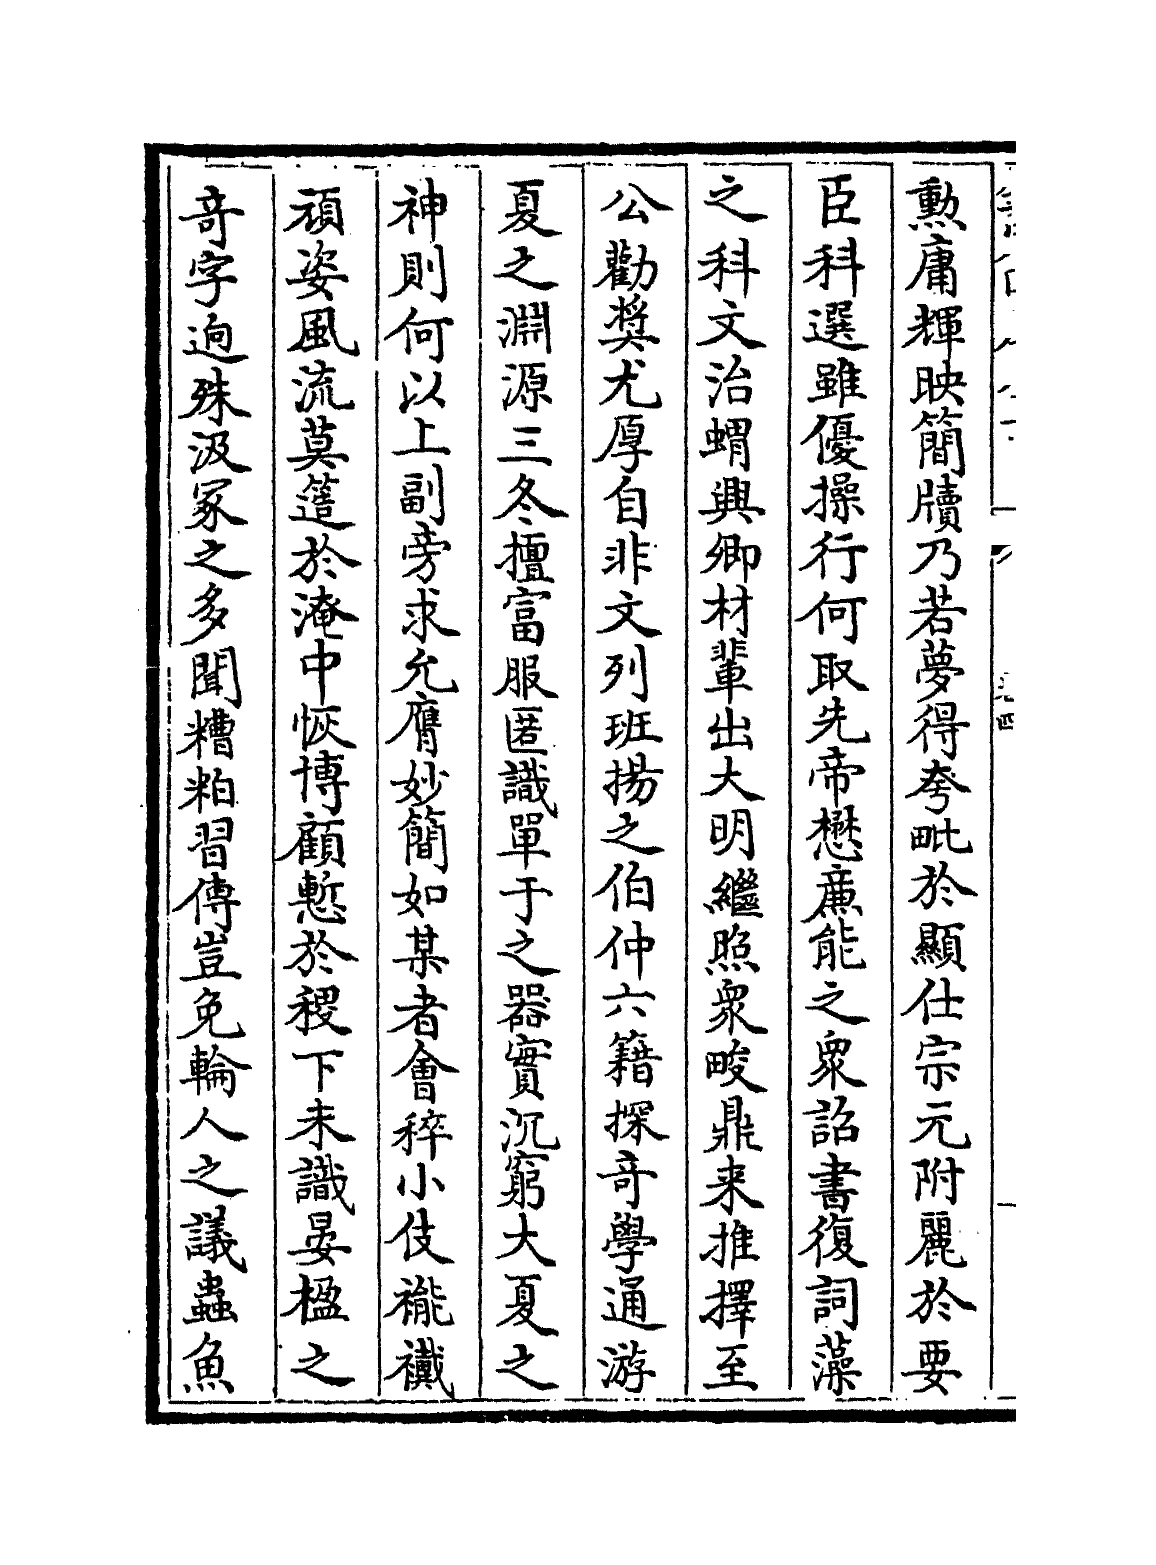 勲庸輝映簡牘乃若夢得夸毗於顯仕宗元附麗於要
臣科選雖優操行何取先帝懋亷能之衆詔書復詞藻
之科文治蝟興卿材輩出大明繼照衆畯鼎来推擇至
公勸奬尤厚自非文列班揚之伯仲六籍探竒學通游
夏之淵源三冬擅富服匿識單于之器實沉窮大夏之
神則何以上副旁求允膺妙簡如某者㑹稡小伎褦襶
頑姿風流莫簉於淹中恢博顧慙於稷下未識晏楹之
竒字逈殊汲冢之多聞糟粕習傳豈免輪人之議蟲魚